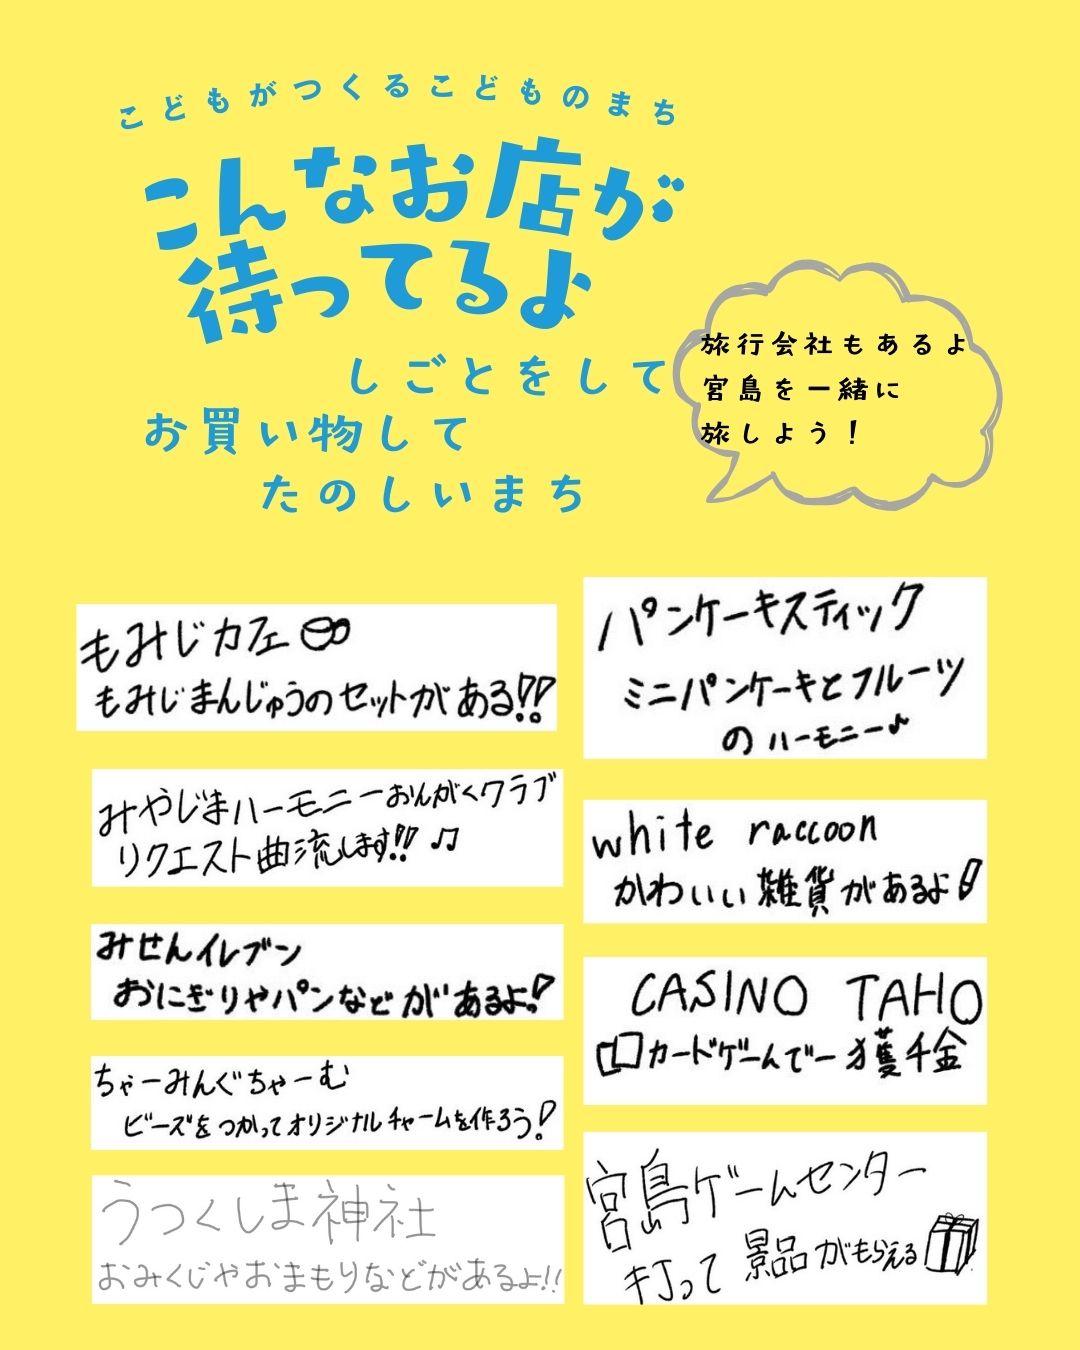 こどもがつくるこどものまち
こんなお店が
待ってるよ
しごとをして
お買い物して
たのしいまち
旅行会社もあるよ
宮島を一緒に
旅しよう!
もみじカフェ
もみじまんじゅうのセットがある!!
みやじまハーモニーおんがくクラブ
リクエスト曲流します!! ♫
みせんイレブン
おにぎりやパンなどがあるよ!
ちゃーみんぐちゃーむ
ビーズをつかってオリジナルチャームを作ろう!
うつくしま神社
おみくじやおまもりなどがあるよ!!
パンケーキスティック
ミニパンケーキとフルーツ
のハーモニー♪
white raccoon
かわいい雑貨があるよ!
CASINO TAHO
カードゲームで一獲千金
宮島ゲームセンター
打って景品がもらえる